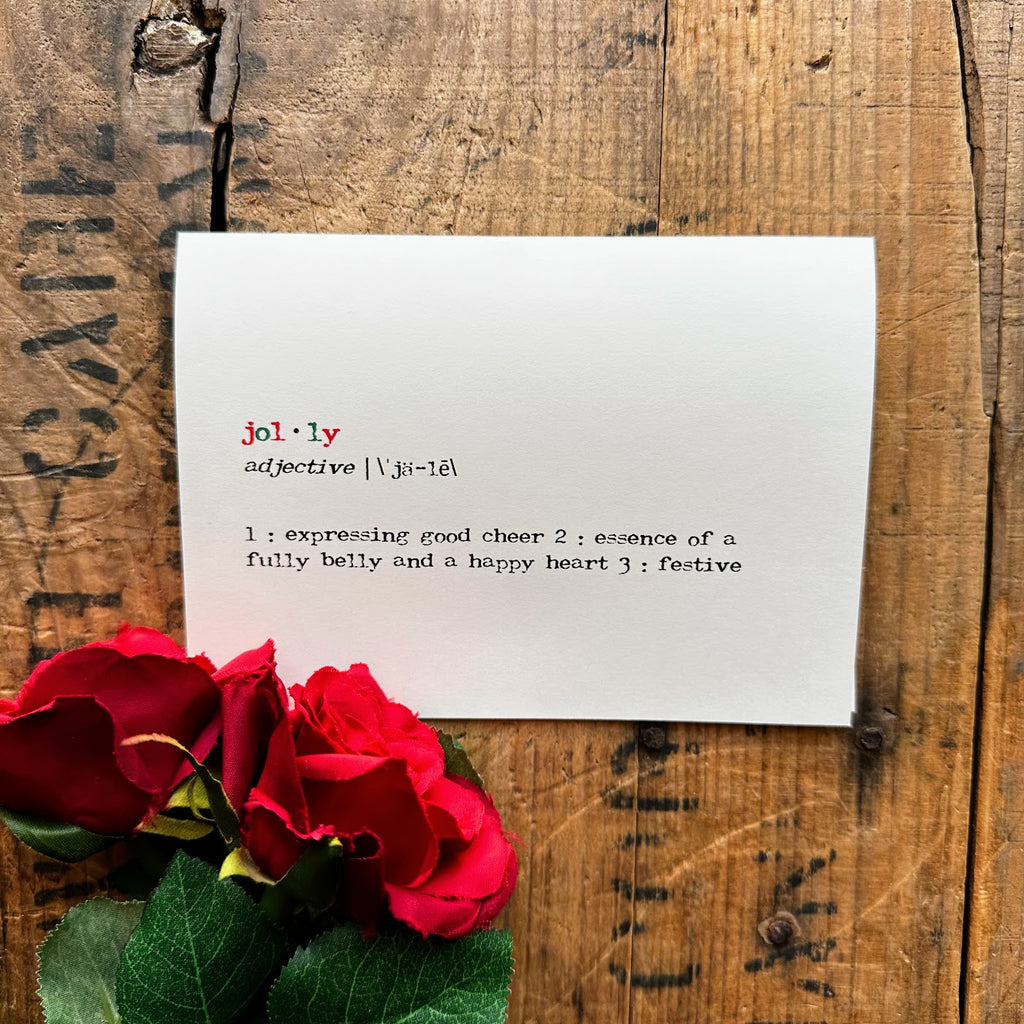 jol·ly
adjective | \ˈjä-lē\
1 : expressing good cheer 2 : essence of a
fully belly and a happy heart 3 : festive